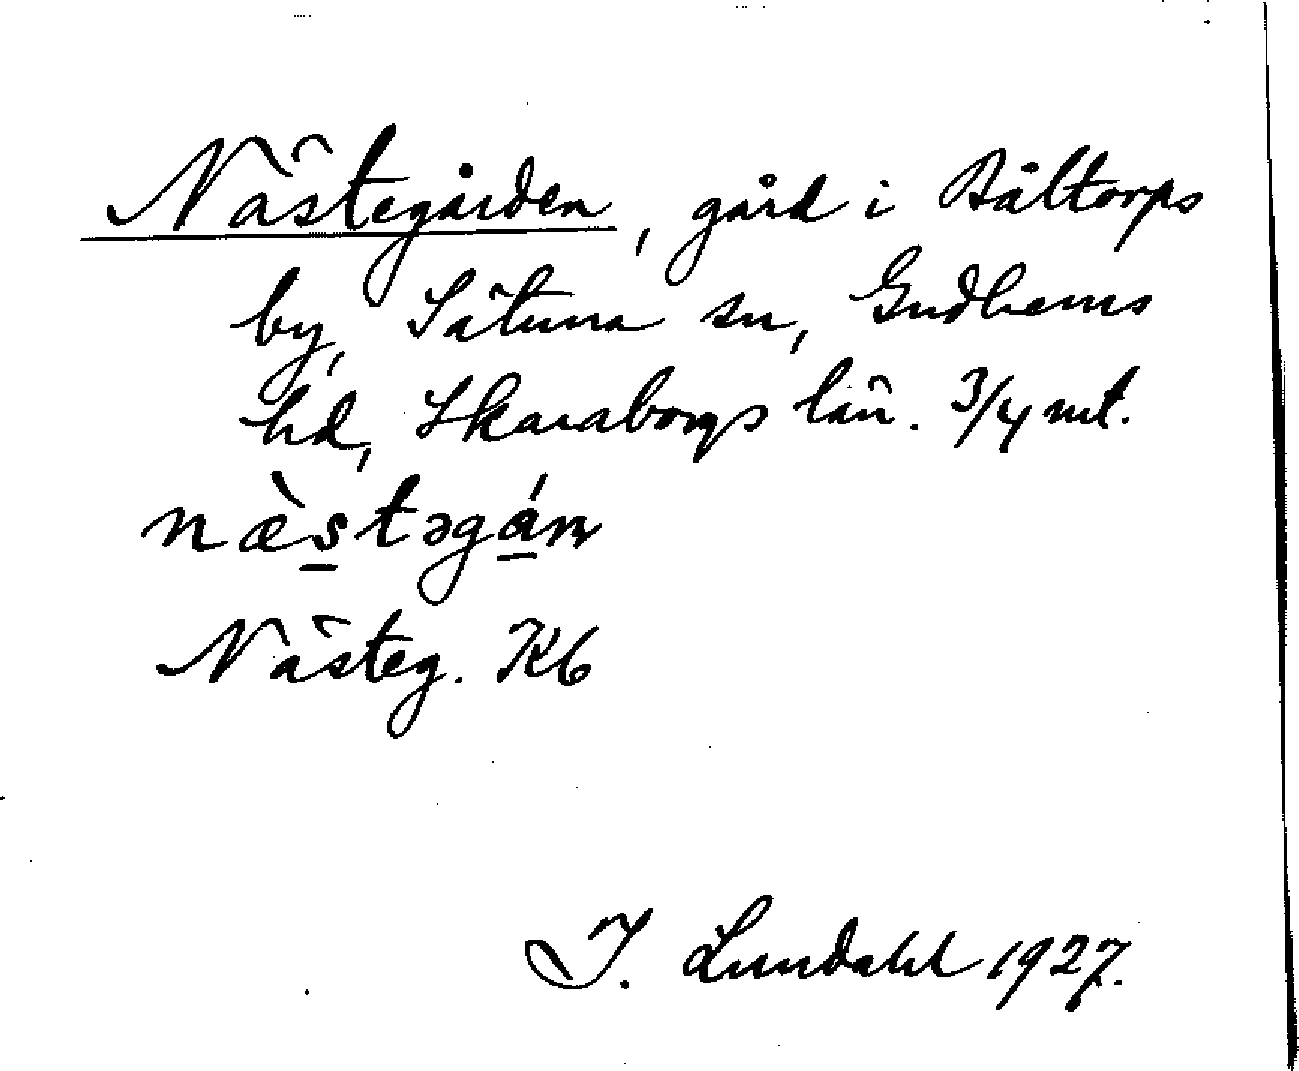 Nästegården, gård i Båltorps
by, Sätuna sn, Gudhems
hd, Skaraborgs län. 3/4 mt.
næ̀stəgán
Nästeg. Kb
I. Lundahl 1927.